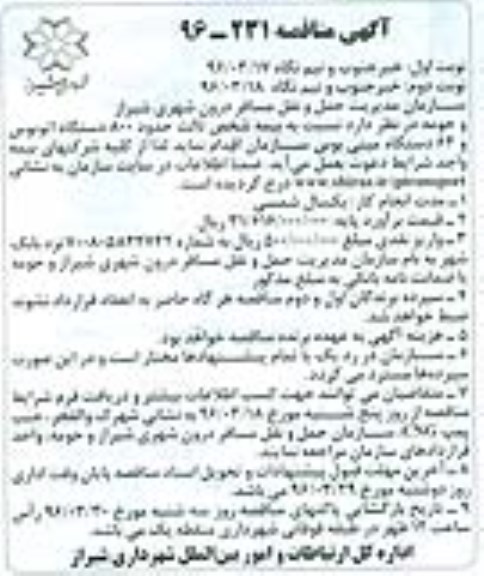 آگهی مناقصه ۲۳۱ ــ ۹۶
نوبت اول: خبر جنوب و نیم نگاه ۹۶/۰۳/۱۷
نوبت دوم: خبر جنوب و نیم نگاه ۹۶/۰۳/۱۸
سازمان مدیریت حمل و نقل مسافر درون شهری شیراز
و حومه در نظر دارد نسبت به بیمه شخص ثالث حدود ۸۰۰ دستگاه اتوبوس
و ۶۴ دستگاه مینی بوس سازمان اقدام نماید لذا از کلیه شرکتهای بیمه
واجد شرایط دعوت بعمل می‌آید. ضمنا اطلاعات در سایت سازمان به نشانی
درج گردیده است.
۱ ــ مدت انجام کار: یکسال شمسی
۲ ــ قیمت برآورد پایه: ریال
۳ ــ واریز نقدی مبلغ ریال به شماره نزد بانک
شهر به نام سازمان مدیریت حمل و نقل مسافر درون شهری شیراز و حومه
یا ضمانت نامه بانکی به مبلغ مذکور
۴ ــ سپرده برندگان اول و دوم مناقصه هر گاه حاضر به انعقاد قرارداد نشوند
ضبط خواهد شد.
۵ ــ هزینه آگهی به عهده برنده مناقصه خواهد بود.
۶ ــ سازمان در رد یک یا تمام پیشنهادها مختار است و در این صورت
سپرده‌ها مسترد می گردد.
۷ ــ متقاضیان می توانند جهت کسب اطلاعات بیشتر و دریافت فرم شرایط
مناقصه از روز پنج شنبه مورخ ۹۶/۰۳/۱۸ به نشانی شهرک والفجر، جنب
پمپ سازمان حمل و نقل مسافر درون شهری شیراز و حومه، واحد
قراردادهای سازمان مراجعه نمایند.
۸ ــ آخرین مهلت قبول پیشنهادات و تحویل اسناد مناقصه پایان وقت اداری
روز دوشنبه مورخ ۹۶/۰۳/۲۹ می باشد.
۹ ــ تاریخ بازگشایی پاکتهای مناقصه روز سه شنبه مورخ ۹۶/۰۳/۳۰ رأس
ساعت ۱۲ ظهر در طبقه فوقانی شهرداری منطقه یک می باشد.
اداره کل ارتباطات و امور بین‌الملل شهرداری شیراز